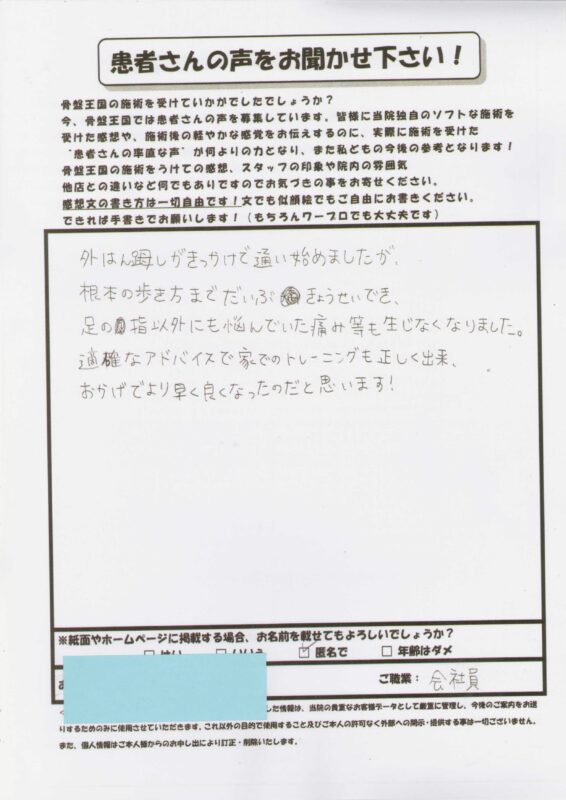 患者さんの声をお聞かせ下さい！
骨盤王国の施術を受けていかがでしたでしょうか？
今、骨盤王国では患者さんの声を募集しています。皆様に当院独自のソフトな施術を
受けた感想や、施術後の軽やかな感覚をお伝えするのに、実際に施術を受けた
"患者さんの率直な声"が何よりの力となり、また私どもの今後の参考となります！
骨盤王国の施術をうけての感想、スタッフの印象や院内の雰囲気
他店との違いなど何でもありですのでお気づきの事をお寄せください。
感想文の書き方は一切自由です！文でも似顔絵でもご自由にお書きください。
できれば手書きでお願いします！（もちろんワープロでも大丈夫です）
外はん踇しがきっかけで通い始めましたが、
根本の歩き方までだいぶきょうせいでき、
足の指以外にも悩んでいた痛み等も生じなくなりました。
適確なアドバイスで家でのトレーニングも正しく出来、
おかげでより早く良くなったのだと思います！
※紙面やホームページに掲載する場合、お名前を載せてもよろしいでしょうか？
□はい □いいえ ☑匿名で □年齢はダメ
ご職業：会社員
した情報は、当院の貴重なお客様データとして厳重に管理し、今後のご案内をお送
りするためのみに使用させていただきます。これ以外の目的で使用すること及びご本人の許可なく外部への開示・提供する事は一切ございません。
また、個人情報はご本人様からのお申し出により訂正・削除いたします。